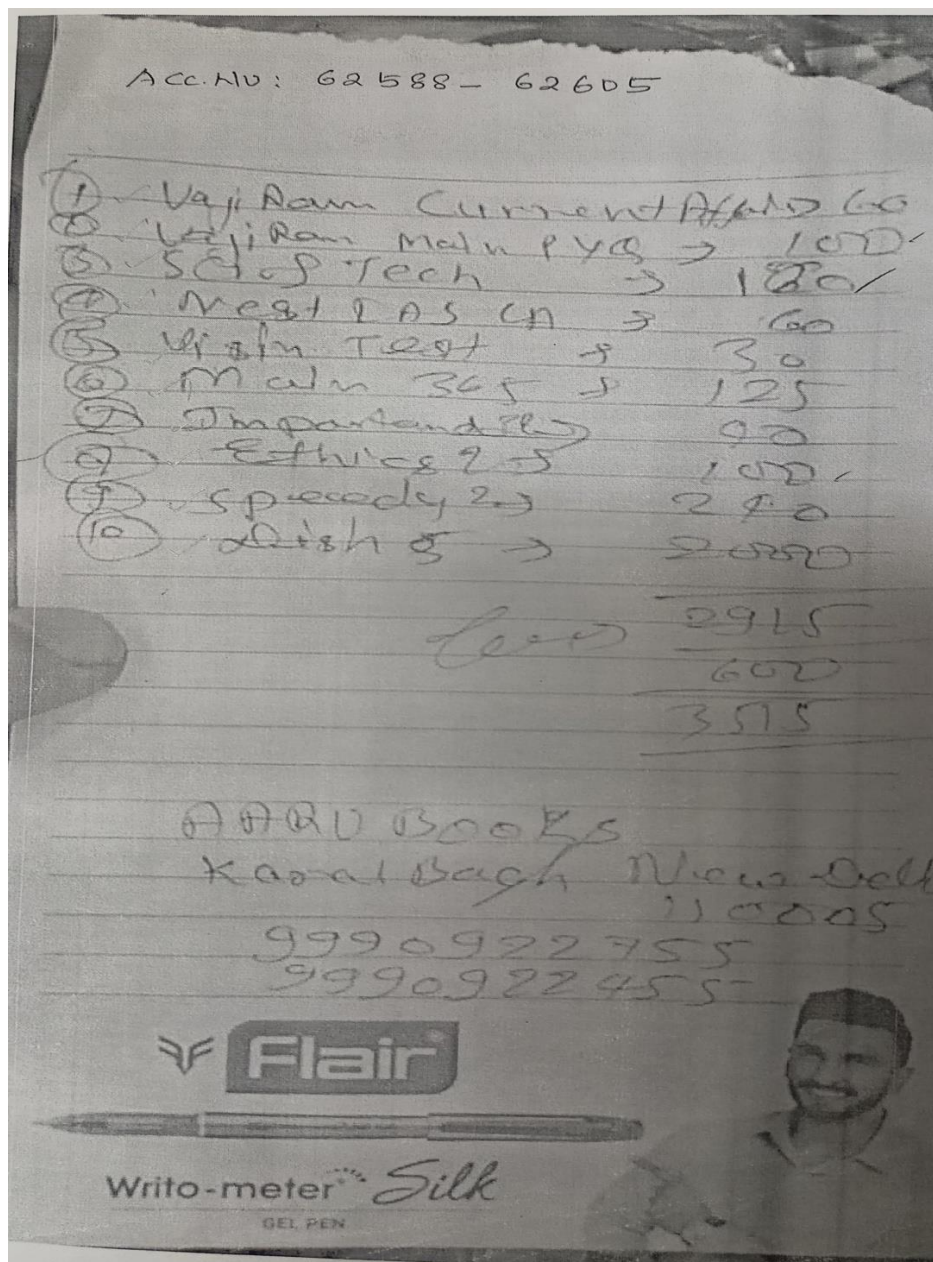 Acc.No: 62588- 62605
① VajiRam Current Affairs 60
② VajiRam Main PYQ → 100
③ Sci of Tech → 120/
④ Nest IAS CA → 60
⑤ Test → 30
⑥ Main 365 → 125
⑦ 90
Ethics 100
⑨ Speedy 2 →
⑩ Dish 5 → 2000
2915
600
3515
AARU Books
Karol Bagh New Delh
110005
9990922755
9990922455
Flair
Writo-meter Silk
GEL PEN